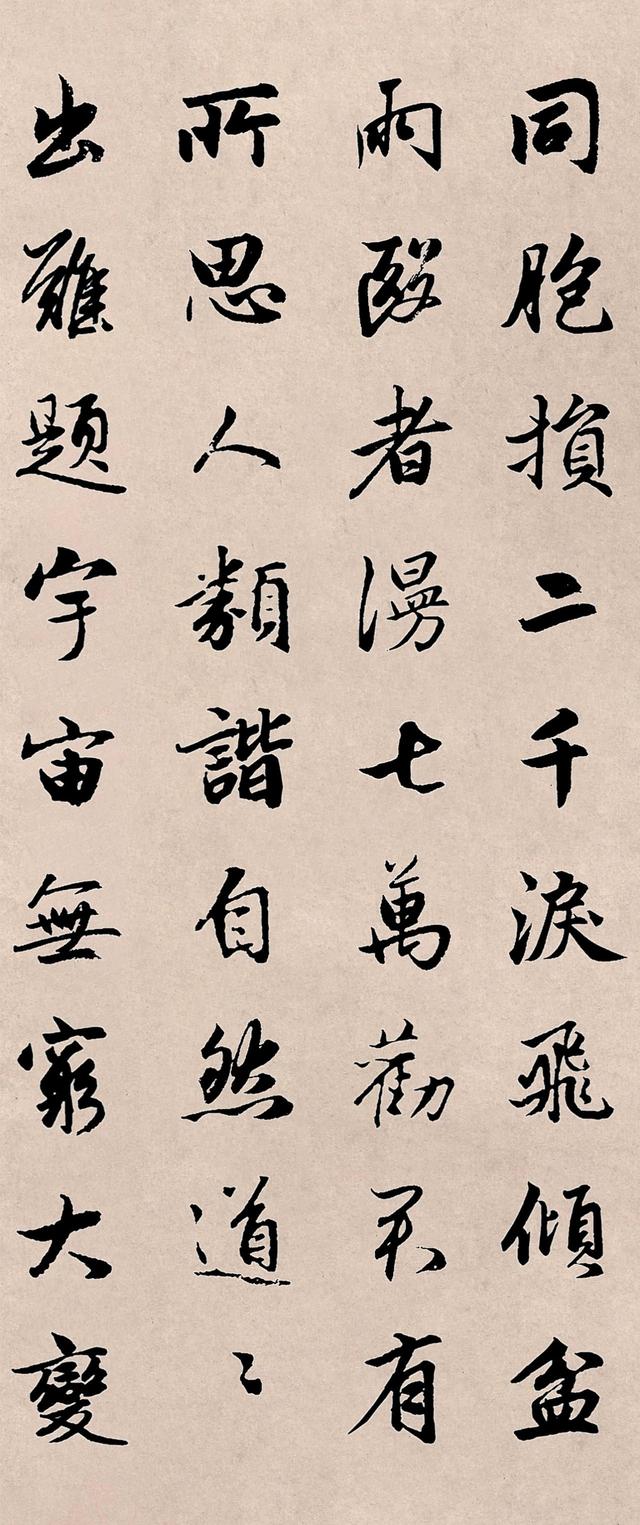 同胞損二千淚飛傾盆
雨者漫七萬勸君有
所思人類諧自然道〻
出難題宇宙無窮大變